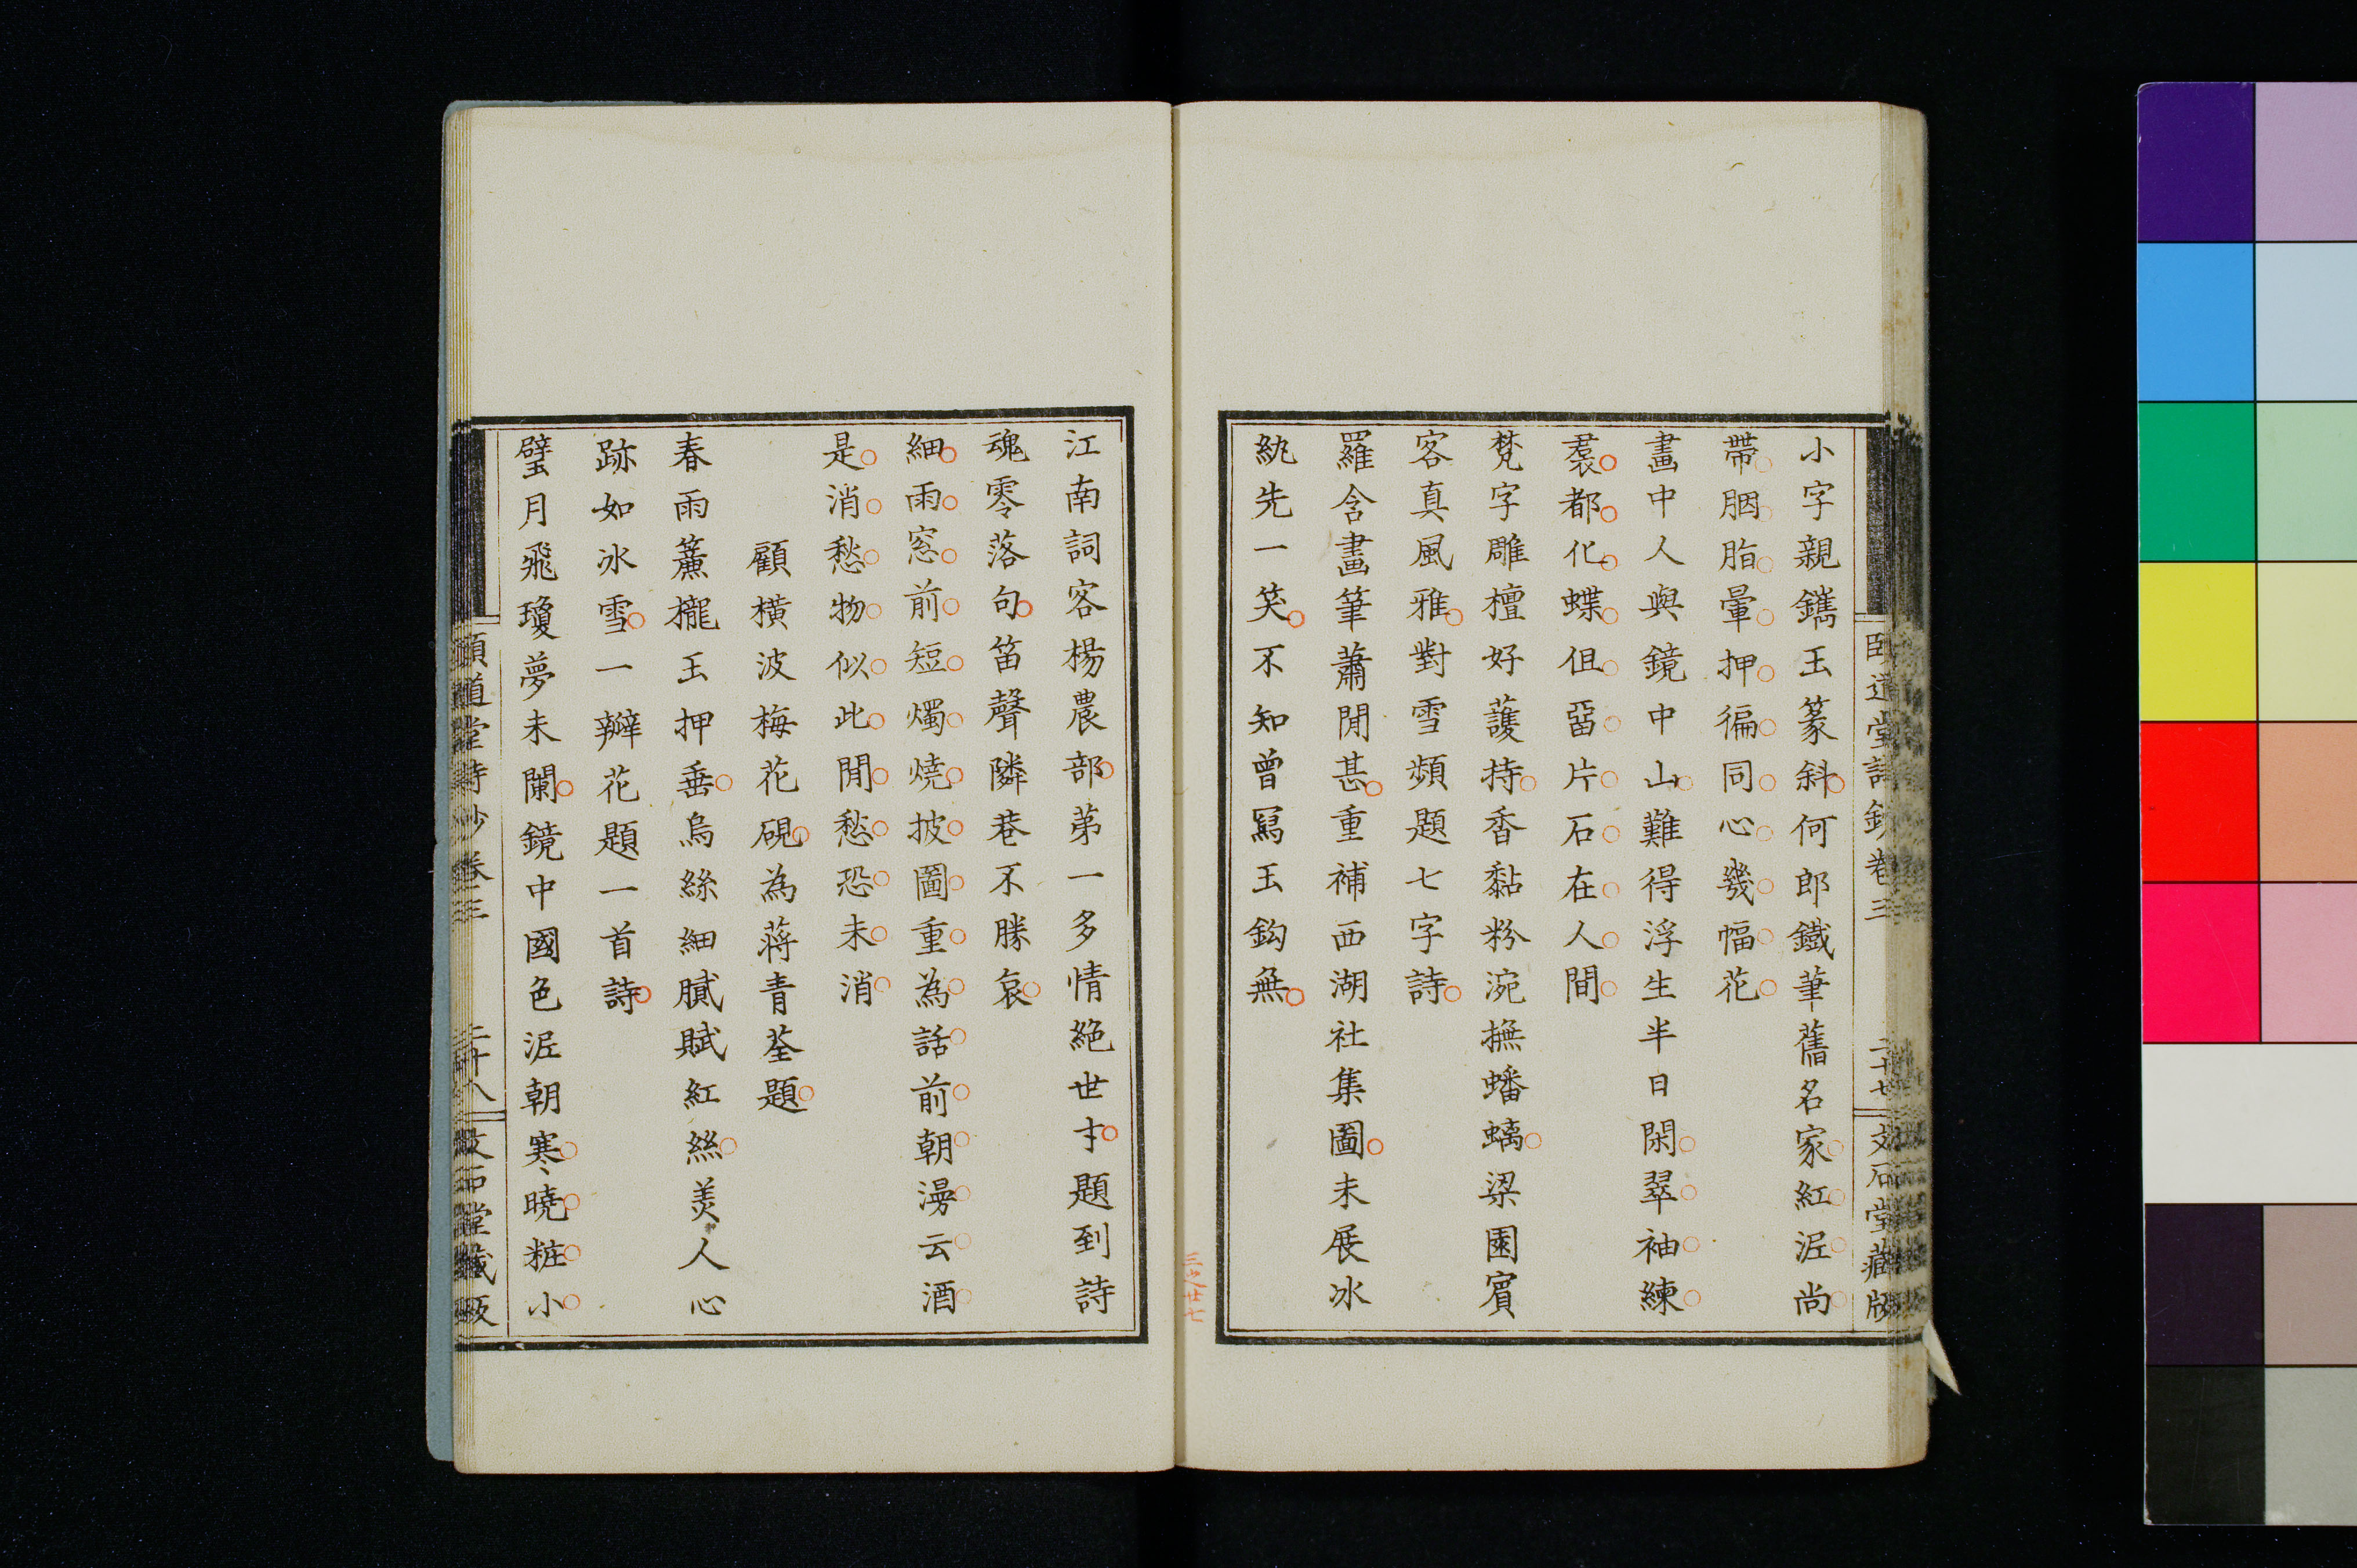 小字親鐫玉篆斜何郎鐵筆舊名家紅泥尚
帶胭脂暈押徧同心幾幅花
畫中人與鏡中山難得浮生半日閑翠袖練
裠都化蝶但畱片石在人間
梵字雕檀好護持香黏粉涴撫蟠螭梁園賓
客真風雅對雪頻題七字詩
羅含畫筆蕭閒甚重補西湖社集圖未展冰
紈先一笑不知曾寫玉鉤無
頤道堂詩鈔卷三 二十七 文石堂藏版
三之廿七
江南詞客楊農部苐一多情絕世才題到詩
魂零落句笛聲隣巷不勝哀
細雨窓前短燭燒披圖重為話前朝漫云酒
是消愁物似此閒愁恐未消
顧橫波梅花硯為蔣青荃題
春雨簾櫳玉押垂烏絲細膩賦紅絲羨人心
跡如冰雪一瓣花題一首詩
璧月飛瓊夢未闌鏡中國色泥朝寒曉粧小
頤道堂詩鈔卷三 二十八 文石堂藏版